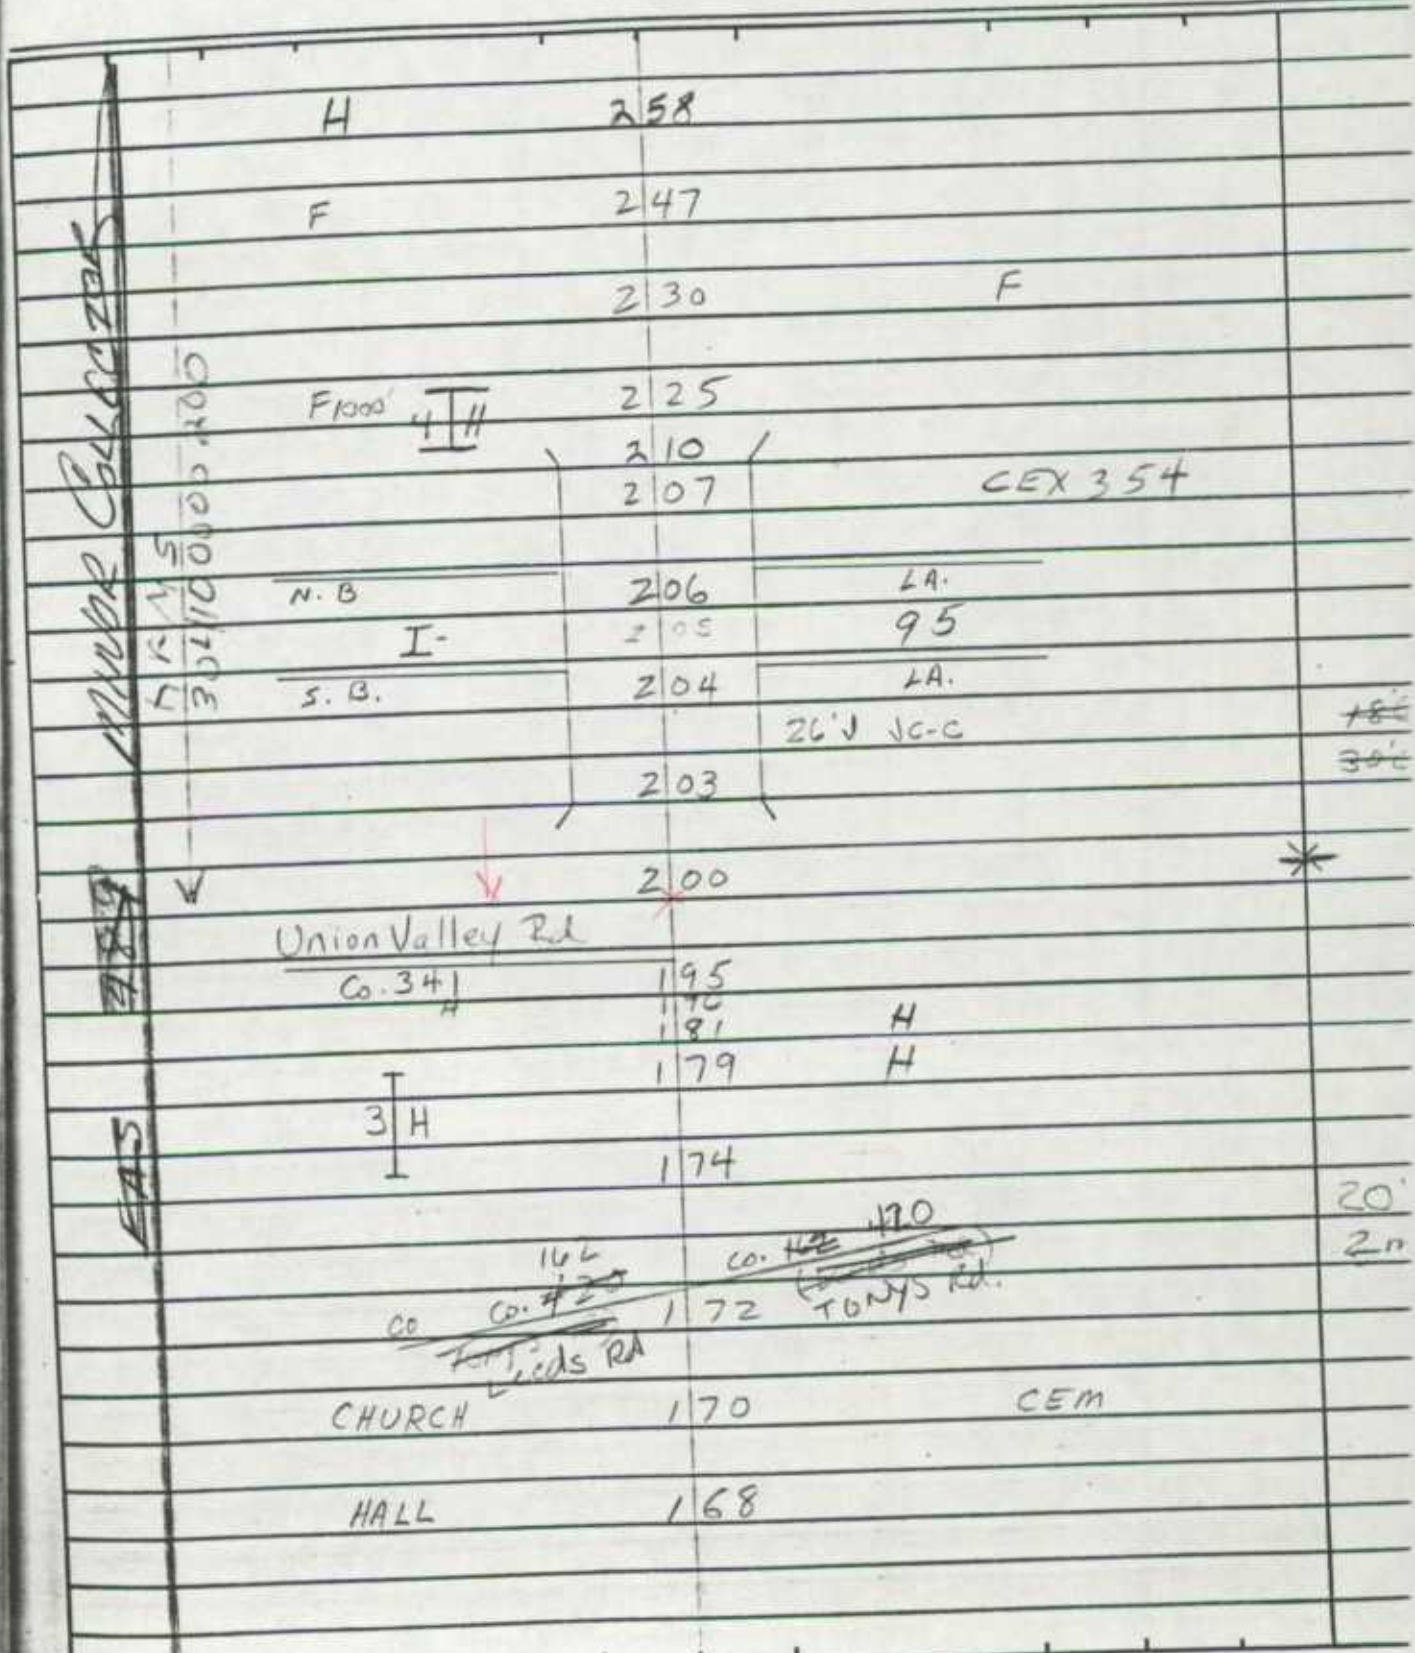 H 2 58
F 2 47
2 30 F
F 1000' 4 H 2 25
2 10
2 07 CEX 354
N. B 2 06 LA.
I- 2 05 95
S. B. 2 04 LA.
26' J JC-C
2 03
2 00
Union Valley Rd
Co. 341 1 95
H 1 90
1 81 H
1 79 H
3 H
1 74
20'
162 Co. 162 420
Co Co. 420 1 72 TONYS Rd.
Leeds Rd
CHURCH 1 70 CEM
HALL 1 68
MINOR COLLECTOR
489
FAS